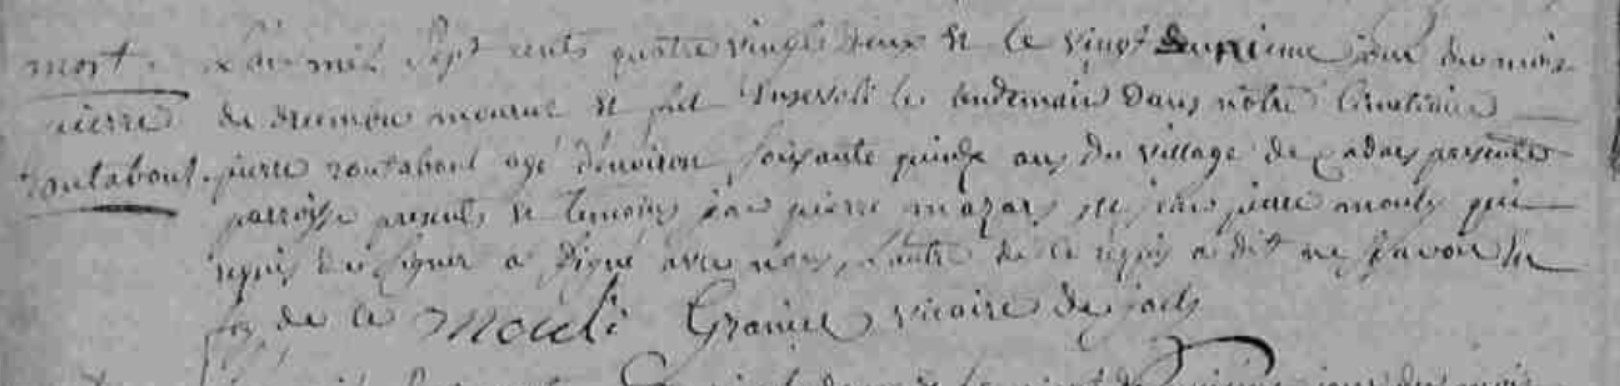 mort. L'an mil sept cents quatre vingts deux et le vingt deuxieme jour du mois
pierre de mourut et fut inseveli le lendemain dans nôtre Cimetiere
routaboul. pierre routaboul agé d'environ soixante quinze ans du village de cadars presente
parroisse presents et temoins jean pierre mazars et jean pierre mouly qui
requis de signer a signé avec nous, l'autre de ce requis a dit ne savoir en
foy de ce Mouli Granier vicaire de